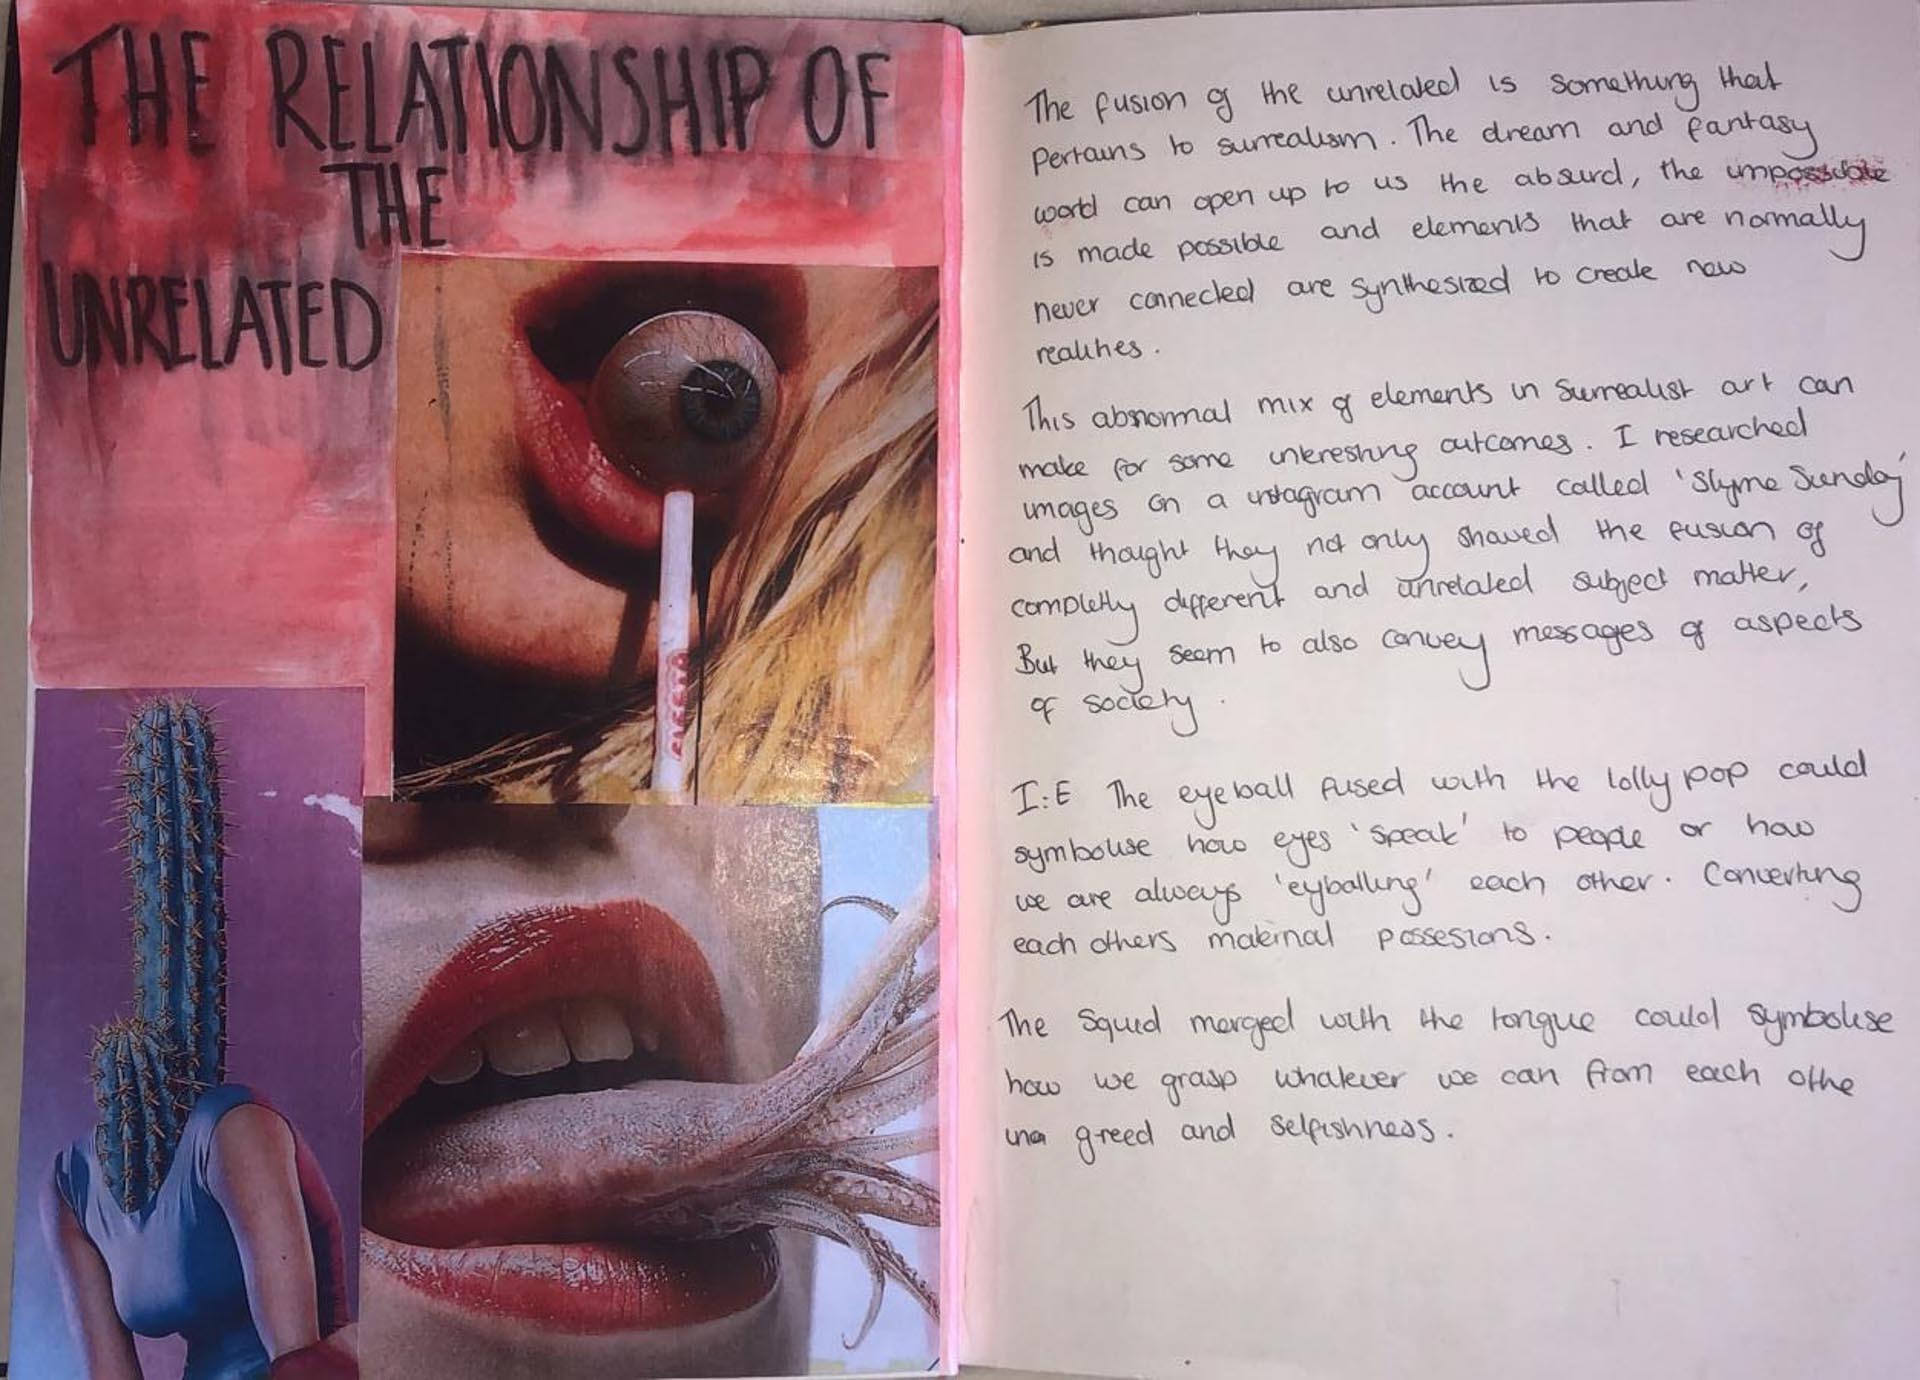 THE RELATIONSHIP OF
THE
UNRELATED
The fusion of the unrelated is something that
pertains to surrealism. The dream and fantasy
world can open up to us the absurd, the impossible
is made possible and elements that are normally
never connected are synthesized to create new
realities.
This abnormal mix of elements in Surrealist art can
make for some interesting outcomes. I researched
images on a instagram account called 'Slyme Sunday'
and thought they not only showed the fusion of
completly different and unrelated subject matter,
But they seem to also convey messages of aspects
of society.
I:E The eyeball fused with the lolly pop could
symbolise how eyes 'speak' to people or how
we are always 'eyballing' each other. Converting
each others material possesions.
The Squid merged with the tongue could symbolise
how we grasp whatever we can from each othe
greed and selfishness.